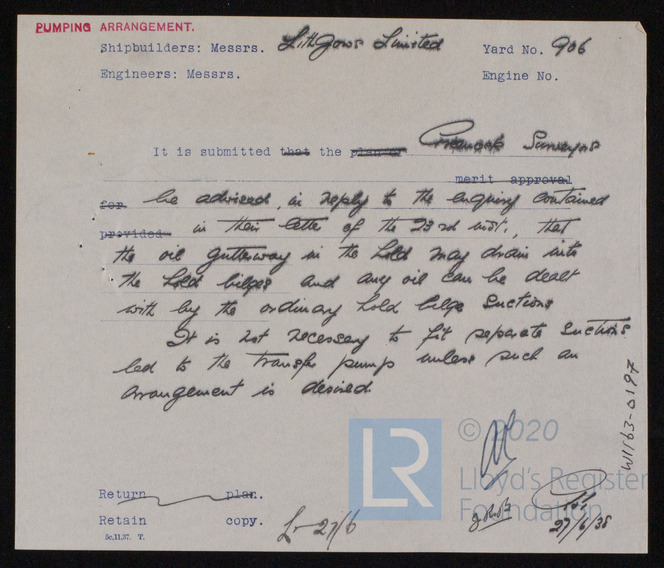 PUMPING ARRANGEMENT.
Shipbuilders: Messrs. Lithgows Limited Yard No. 906
Engineers: Messrs. Engine No.
It is submitted that the plan of Greenock Surveyors
merit approval
for be advised, in reply to the enquiry contained
provided in their letter of the 23rd inst., that
the oil gutterway in the hold may drain into
the hold bilges and any oil can be dealt
with by the ordinary hold bilge suctions
It is not necessary to fit separate suctions
led to the transfer pump unless such an
arrangement is desired.
W1163-0197
© 2020
LR
Lloyd's Register
Foundation
Return plan.
Retain copy.
Lr 27/6
27/6/38
5c,11.37. T.